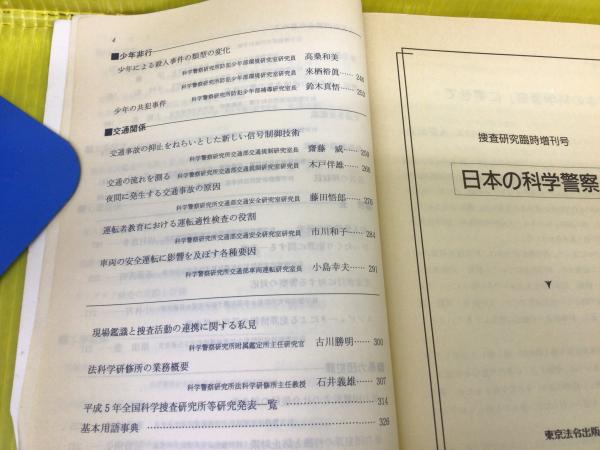 4
■少年非行
少年による殺人事件の類型の変化
科学警察研究所防犯少年部環境研究室研究員 高桑和美
科学警察研究所防犯少年部環境研究室研究員 来栖裕眞……246
少年の共犯事件
科学警察研究所防犯少年部補導研究室長 鈴木真悟……253
■交通関係
交通事故の抑止をねらいとした新しい信号制御技術
科学警察研究所交通部交通規制研究室長 齋藤 威……259
交通の流れを測る 科学警察研究所交通部交通規制研究室研究員 木戸伴雄……268
夜間に発生する交通事故の原因
科学警察研究所交通部交通安全研究室研究員 藤田悟郎……276
運転者教育における運転適性検査の役割
科学警察研究所交通部交通安全研究室研究員 市川和子……284
車両の安全運転に影響を及ぼす各種要因
科学警察研究所交通部車両運転研究室長 小島幸夫……291
現場鑑識と捜査活動の連携に関する私見
科学警察研究所附属鑑定所主任研究官 古川勝明……300
法科学研修所の業務概要
科学警察研究所法科学研修所主任教授 石井義雄……307
平成5年全国科学捜査研究所等研究発表一覧……314
基本用語事典……326
捜査研究臨時増刊号
日本の科学警察
東京法令出版